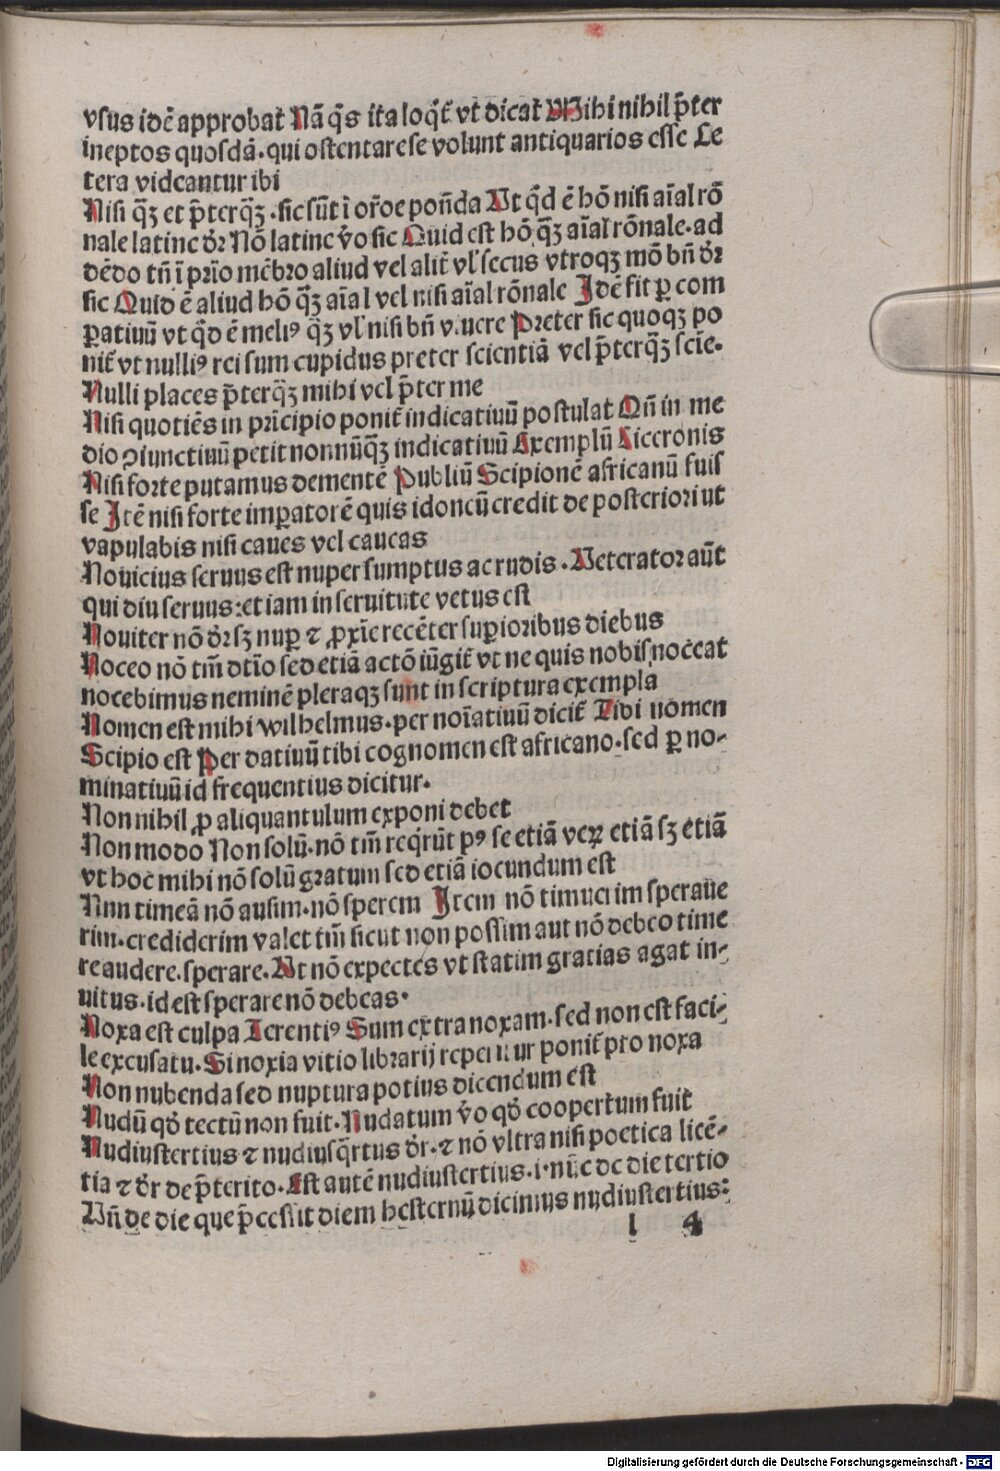 vsus idē approbat Nā q̄s ita loq̄t̄ vt dicat Mihi nihil p̄ter
ineptos quosdā. qui ostentare se volunt antiquarios esse Ce
tera videantur ibi
Nisi q̄ꝫ et p̄terq̄ꝫ. sic sūt ī or̄oe ponēda Ut q̄d ē hō nisi aīal rō
nale latine dr̄ Nō latine v̄o sic Quid est hō q̄ꝫ aīal rōnale. ad
dēdo tn̄ ī prīo mēbro aliud vel alit̄ vl̄ secus vtroqꝫ mō bn̄ dr̄
sic Quid ē aliud hō q̄ꝫ aīal vel nisi aīal rōnale Idē fit ꝑ com
ꝑatiuū vt q̄d ē meliꝰ q̄ꝫ vl̄ nisi bn̄ viuere Preter sic quoqꝫ po
nit̄ vt nulliꝰ rei sum cupidus preter scientiā vel p̄terq̄ꝫ scīe.
Nulli places p̄terq̄ꝫ mihi vel p̄ter me
Nisi quotiēs in prīcipio ponit̄ indicatiuū postulat Qn̄ in me
dio ꝯiunctiuū petit nonnūq̄ꝫ indicatiuū Exemplū Ciceronis
Nisi forte putamus dementē Publiū Scipionē africanū fuis
se Itē nisi forte imꝑatorē quis idoneū credit de posteriori ut
vapulabis nisi caues vel caueas
Nouicius seruus est nuper sumptus ac rudis. Veterator aūt
qui diu seruus: et iam in seruitute vetus est
Nouiter nō dr̄ sꝫ nuꝑ ⁊ ꝓxīe recēter suꝑioribus diebus
Noceo nō tm̄ dtīo sed etiā actō iūgit̄ vt ne quis nobis noceat
nocebimus neminē pleraqꝫ sunt in scriptura exempla
Nomen est mihi wilhelmus. per noīatiuū dicit̄ Tibi nomen
Scipio est Per datiuū tibi cognomen est africano. sed ꝑ no-
minatiuū id frequentius dicitur.
Non nihil ꝓ aliquantulum exponi debet
Non modo Non solū. nō tm̄ req̄rūt pꝰ se etiā veꝝ etiā sꝫ etiā
vt hoc mihi nō solū gratum sed etiā iocundum est
Nnn timeā nō ausim. nō sperem Item nō timueim speraue
rim. crediderim valet tm̄ sicut non possim aut nō debeo time
re audere. sperare. Ut nō expectes vt statim gratias agat in-
uitus. id est sperare nō debeas.
Noxa est culpa Terentiꝰ Sum extra noxam. sed non est faci-
le excusatu. Si noxia vitio librarij reperitur ponit̄ pro noxa
Non nubenda sed nuptura potius dicendum est
Nudū qd̄ tectū non fuit. Nudatum v̄o qd̄ coopertum fuit
Nudiustertius ⁊ nudiusq̄rtus dr̄. ⁊ nō vltra nisi poetica licē-
tia ⁊ dr̄ de p̄terito. Est autē nudiustertius. i. nūc de die tertio
Vn̄ de die que p̄cessit diem hesternū dicimus nudiustertius:
l 4
Digitalisierung gefördert durch die Deutsche Forschungsgemeinschaft - DFG